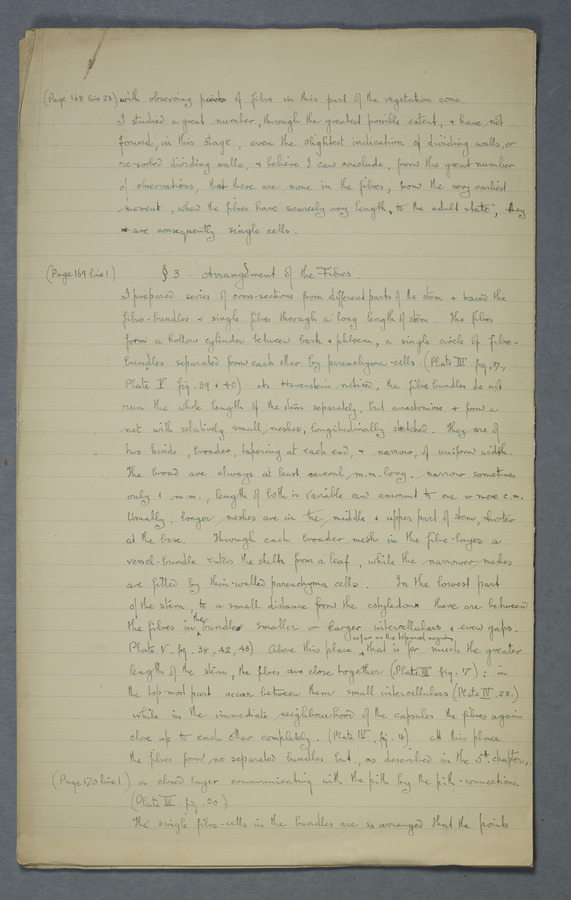 (Page 168 line 23) with observing points of fibre in this part of the vegetation cone.
I studied a great number, through the greatest possible extent, & have not
found, in this stage, even the slightest indication of dividing walls, or
re-sorbed dividing walls, & believe I can conclude, from the great number
of observations, that there are none in the fibres, from the very earliest
moment, when the fibres have scarcely any length, to the adult state, they
are consequently single cells.
(Page 169 line 1.) § 3. Arrangement of the Fibres.
I prepared series of cross-sections from different parts of the stem & traced the
fibre-bundles & single fibres through a long length of stem. The fibres
form a hollow cylinder between bark & phloem, a single circle of fibre-
bundles separated from each other by parenchyma-cells. (Plate III fig. 17,
Plate V fig. 39 & 40) As Havenstein noticed, the fibre bundles do not
run the whole length of the stem separately, but anastomise & form a
net with relatively small meshes, longitudinally stretched. They are of
two kinds, broader, tapering at each end, & narrow, of uniform width.
The broad are always at least several m.m. long, narrow sometimes
only 1 m.m., length of both is variable can amount to one or more c.m.
Usually, longer meshes are in the middle & upper part of stem, shorter
at the base. Through each broader mesh in the fibre-layer a
vessel-bundle enters the stalk from a leaf, while the narrower meshes
are filled by thin-walled parenchyma cells. In the lowest part
of the stem, to a small distance from the cotyledons there are between
the fibres in the bundles smaller or larger intercellulars & even gaps.
Plate V. fig. 38, 42, 43) Above this place, as far as the topmost region, that is for much the greater
length of the stem, the fibres are close together (Plate III fig. 17): in
the top-most part occur between them small intercellulars (Plate IV. 23.)
while in the immediate neighbourhood of the capsules the fibres again
close up to each other completely. (Plate IV. fig. 4) At this place
the fibres form no separated bundles but, as described in the 5th chapter,
(Page 170 line 1) a closed layer communicating with the pith by the pith-connections.
(Plate III. fig. 20)
The single fibre-cells in the bundles are so arranged that the points